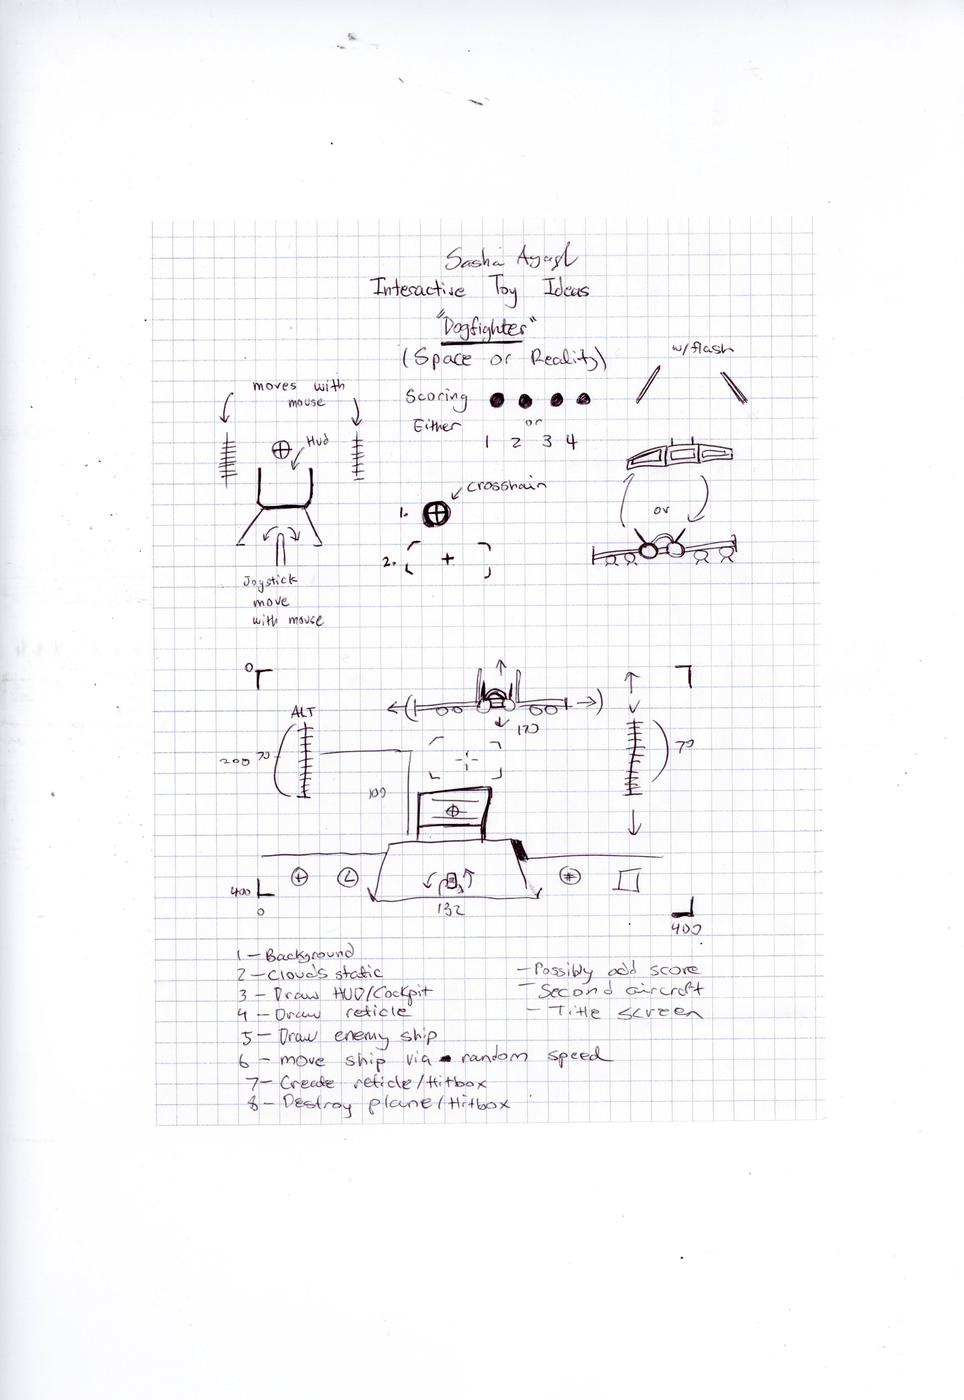 Sasha
Interactive Toy Ideas
"Dogfighter"
(Space or Reality)
w/flash
moves with
mouse
Hud
Scoring
Either or
1 2 3 4
crosshair
1.
2.
or
Joystick
move
with mouse
0
ALT
170
200 70
70
100
400
0
132
400
1 - Background
2 - Clouds static
3 - Draw HUD/Cockpit
4 - Draw reticle
5 - Draw enemy ship
6 - move ship via random speed
7 - Create reticle/Hitbox
8 - Destroy plane/Hitbox
- Possibly add score
- Second aircraft
- Title screen